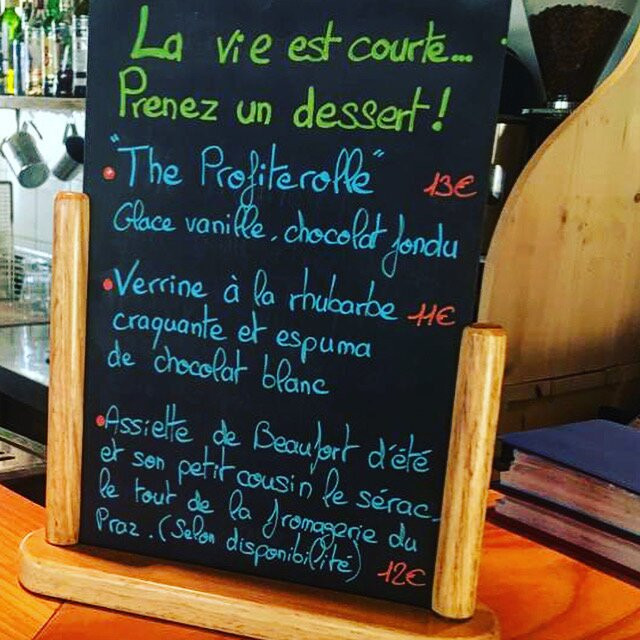 La vie est courte...
Prenez un dessert!
"The Profiterolle" 13€
Glace vanille, chocolat fondu
Verrine à la rhubarbe 11€
craquante et espuma
de chocolat blanc
Assiette de Beaufort d'été
et son petit cousin le sérac
le tout de la fromagerie du
Praz. (Selon disponibilité) 12€